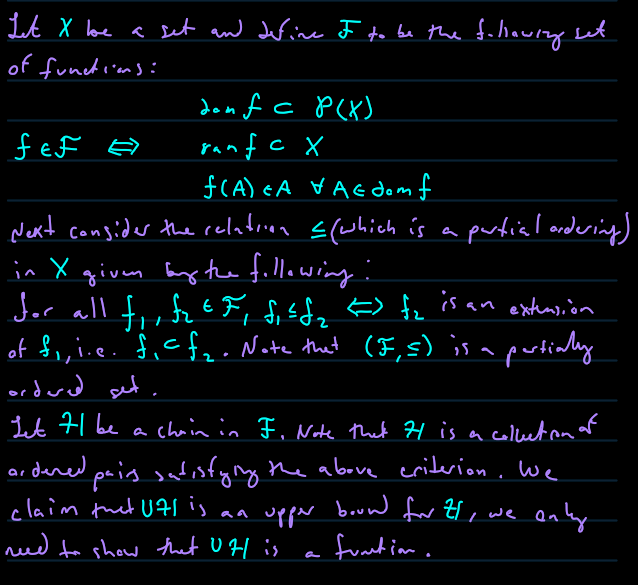 Let X be a set and define ℱ to be the following set
of functions:
dom f ⊂ 𝒫(X)
f ∈ ℱ ⇔ ran f ⊂ X
f(A) ∈ A ∀ A ∈ dom f
Next consider the relation ≤ (which is a partial ordering)
in X given by the following:
for all f₁, f₂ ∈ ℱ, f₁ ≤ f₂ ⇔ f₂ is an extension
of f₁, i.e. f₁ ⊂ f₂. Note that (ℱ, ≤) is a partially
ordered set.
Let ℋ be a chain in ℱ. Note that ℋ is a collection of
ordered pairs satisfying the above criterion. We
claim that ∪ℋ is an upper bound for ℋ, we only
need to show that ∪ℋ is a function.